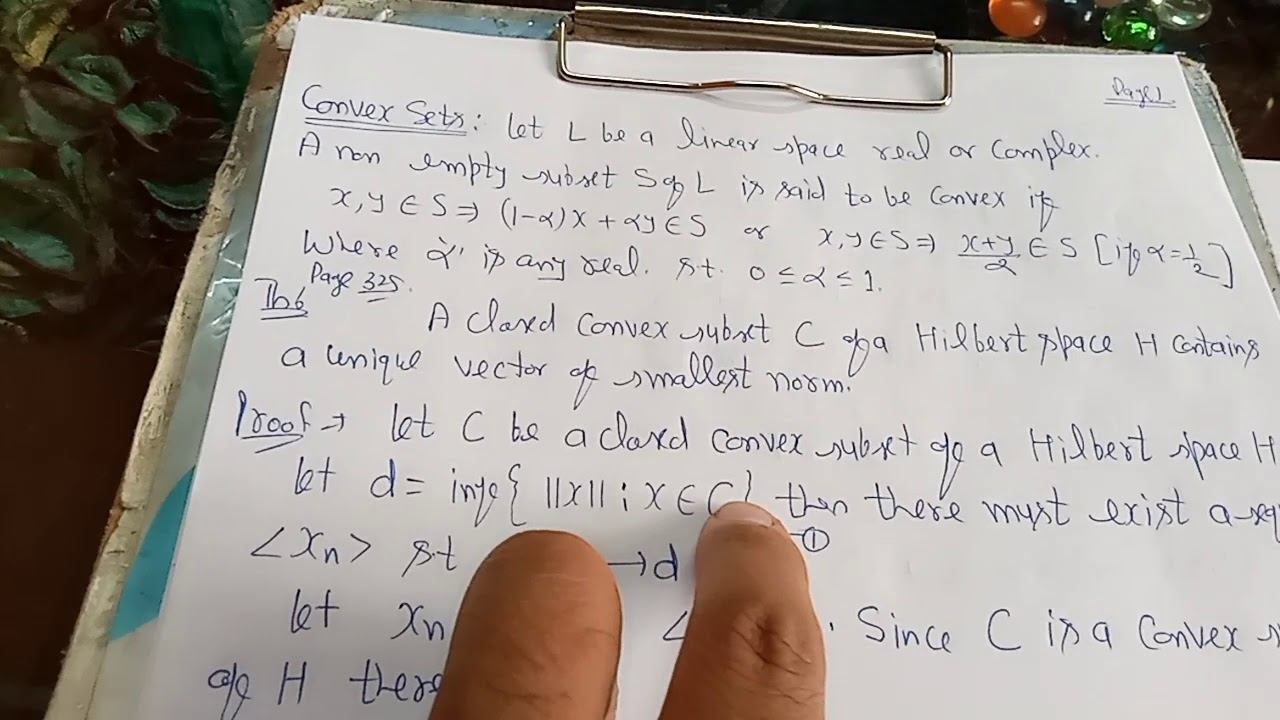 Page 1.
Convex Sets: Let L be a linear space real or Complex.
A non empty subset S of L is said to be Convex if
x, y ∈ S ⇒ (1-α)x + αy ∈ S or x, y ∈ S ⇒ x+y/2 ∈ S [if α = 1/2]
Where 'α' is any real. s.t. 0 ≤ α ≤ 1.
Th 6 Page 325.
A closed Convex subset C of a Hilbert space H Contains
a unique vector of smallest norm.
Proof → Let C be a closed convex subset of a Hilbert space H
Let d = inf { ||x|| ; x ∈ C } then there must exist a
<xn> s.t → d ①
Let xn < . Since C is a Convex
of H there